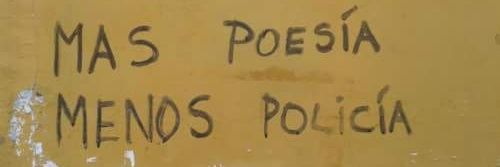 MAS POESÍA
MENOS POLICÍA